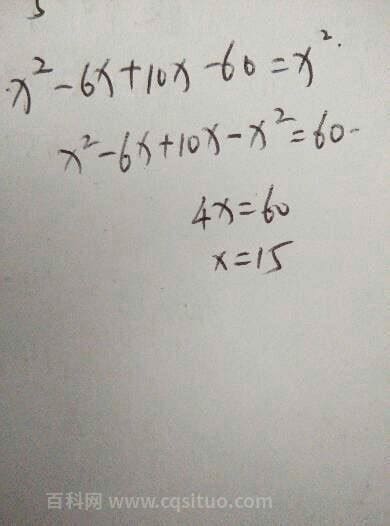 5
x²-6x+10x-60=x².
x²-6x+10x-x²=60.
4x=60
x=15
百科网 www.cqsituo.com